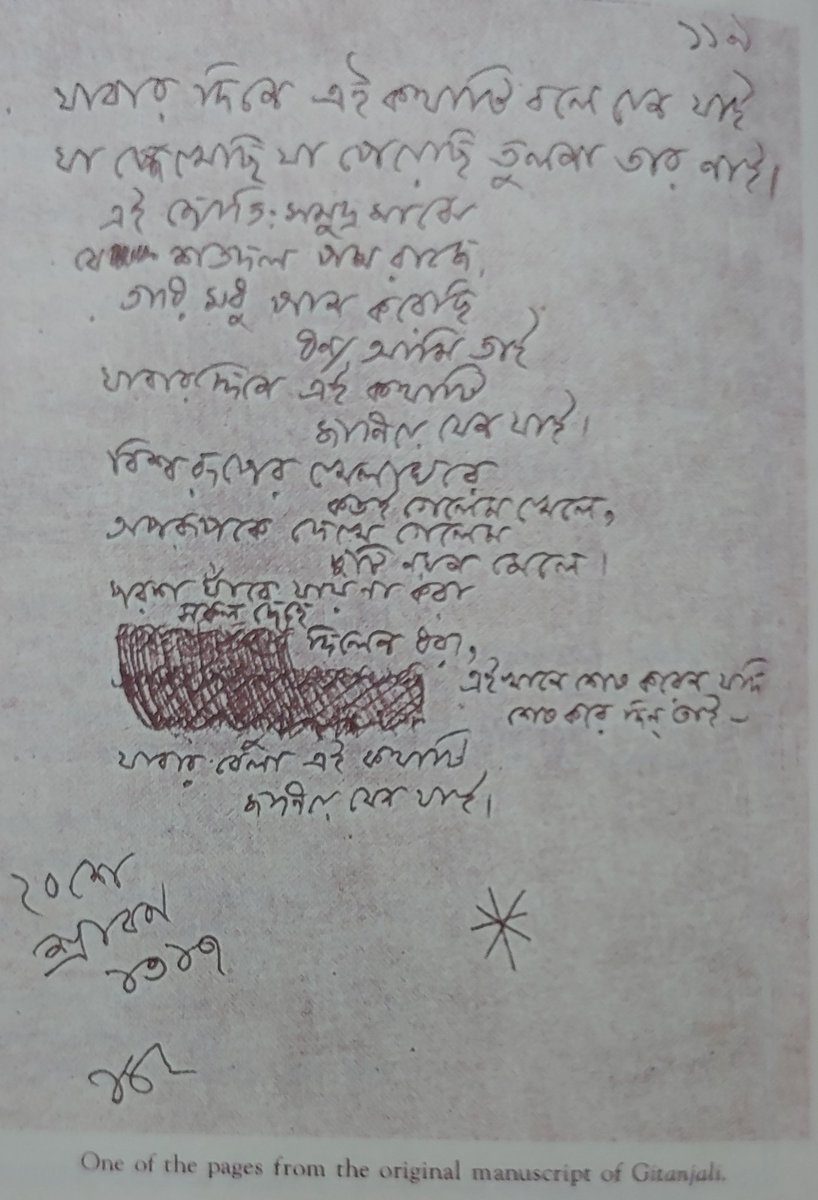 যাবার দিনে এই কথাটি বলে যেন যাই
যা দেখেছি যা পেয়েছি তুলনা তার নাই।
এই জ্যোতিঃসমুদ্র মাঝে
যে শতদল পদ্ম রাজে,
তারি মধু পান করেছি
ধন্য আমি তাই
যাবার দিনে এই কথাটি
জানিয়ে যেন যাই।
বিশ্বরূপের খেলাঘরে
কতই গেলেম খেলে,
অপরূপকে দেখে গেলেম
দুটি নয়ন মেলে।
পরশ যাঁরে যায় না করা
সকল দেহে
দিলেন ধরা,
এইখানে শেষ করেন যদি
শেষ করে দিন্ তাই –
যাবার বেলা এই কথাটি
জানিয়ে যেন যাই।
২০শে
শ্রাবণ
১৩১৭
One of the pages from the original manuscript of Gitanjali.